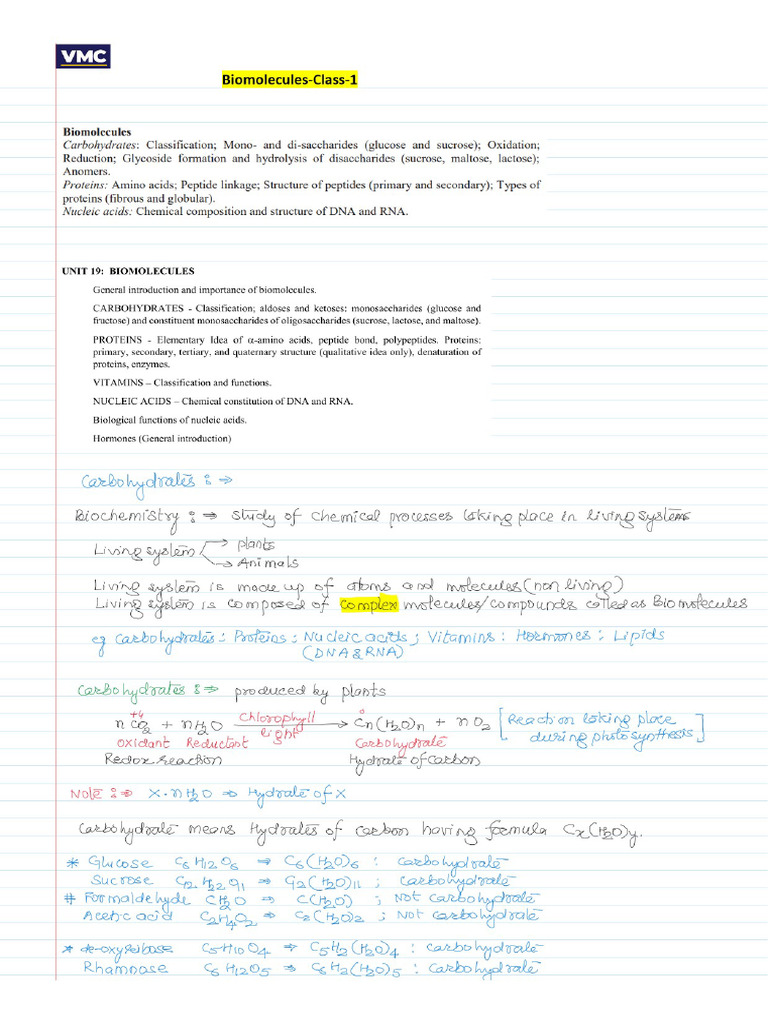 VMC
Biomolecules-Class-1
Biomolecules
Carbohydrates: Classification; Mono- and di-saccharides (glucose and sucrose); Oxidation;
Reduction; Glycoside formation and hydrolysis of disaccharides (sucrose, maltose, lactose);
Anomers.
Proteins: Amino acids; Peptide linkage; Structure of peptides (primary and secondary); Types of
proteins (fibrous and globular).
Nucleic acids: Chemical composition and structure of DNA and RNA.
UNIT 19: BIOMOLECULES
General introduction and importance of biomolecules.
CARBOHYDRATES - Classification; aldoses and ketoses: monosaccharides (glucose and
fructose) and constituent monosaccharides of oligosaccharides (sucrose, lactose, and maltose).
PROTEINS - Elementary Idea of α-amino acids, peptide bond, polypeptides. Proteins:
primary, secondary, tertiary, and quaternary structure (qualitative idea only), denaturation of
proteins, enzymes.
VITAMINS – Classification and functions.
NUCLEIC ACIDS – Chemical constitution of DNA and RNA.
Biological functions of nucleic acids.
Hormones (General introduction)
Carbohydrates :→
Biochemistry :⇒ study of chemical processes taking place in living system
Living system → plants
→ Animals
Living system is made up of atoms and molecules (non living)
Living system is composed of complex molecules/compounds called as Biomolecules
eg Carbohydrates; Proteins; Nucleic acids; Vitamins; Hormones; Lipids
(DNA & RNA)
Carbohydrates :⇒ produced by plants
+4 0
nCO2 + nH2O Chlorophyll light → Cn(H2O)n + nO2 [Reaction taking place during photosynthesis]
oxidant Reductant Carbohydrate
Redox reaction Hydrate of carbon
Note :⇒ X.nH2O ⇒ Hydrate of X
Carbohydrate means Hydrates of carbon having formula Cx(H2O)y.
* Glucose C6H12O6 ⇒ C6(H2O)6 : carbohydrate
Sucrose C12H22O11 ⇒ C12(H2O)11 ; carbohydrate
# Formaldehyde CH2O ⇒ C(H2O) ; Not carbohydrate
Acetic acid C2H4O2 ⇒ C2(H2O)2 ; Not carbohydrate
* de-oxyribose C5H10O4 ⇒ C5H2(H2O)4 : carbohydrate
Rhamnose C6H12O5 ⇒ C6H2(H2O)5 : Carbohydrate